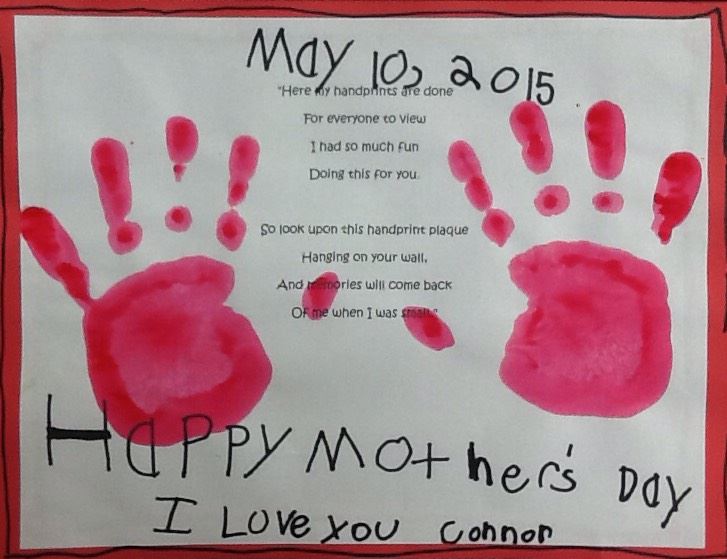 May 10, 2015
"Here my handprints are done
For everyone to view
I had so much fun
Doing this for you.
So look upon this handprint plaque
Hanging on your wall,
And memories will come back
Of me when I was small."
HAPPY Mother's DAY
I Love you Connor